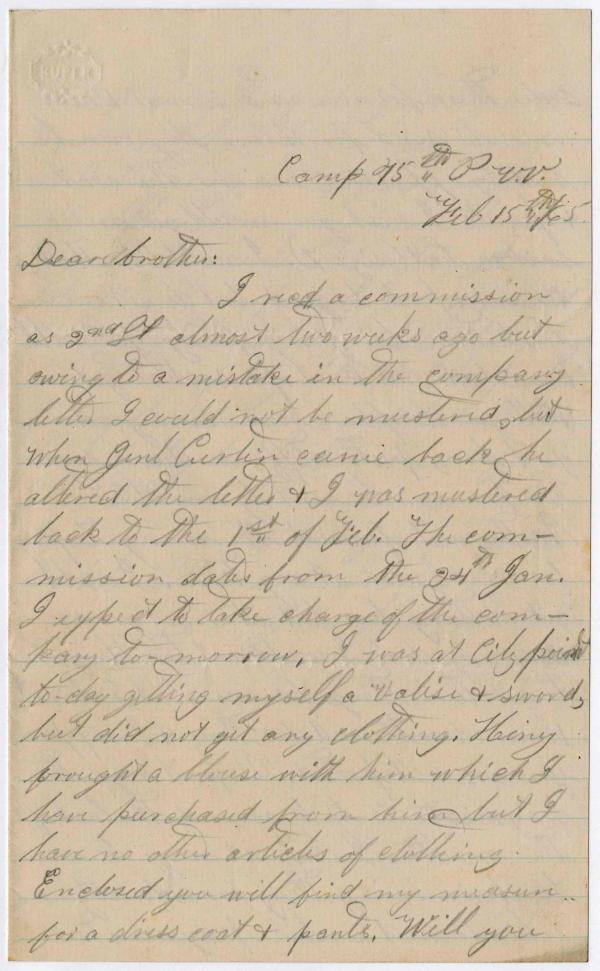 Camp 45th P V.V.
Feb 15th /65.
Dear brother:
I recd a commission
as 2nd Lt almost two weeks ago but
owing to a mistake in the company
letter I could not be mustered, but
when Genl Curtin came back he
altered the letter & I was mustered
back to the 1st of Feb. The com-
mission dates from the 24th Jan.
I expect to take charge of the com-
pany to-morrow. I was at City point
to-day getting myself a valise & sword,
but did not get any clothing. Heiny
brought a blouse with him which I
have purchased from him but I
have no other articles of clothing.
Enclosed you will find my measure
for a dress coat & pants. Will you